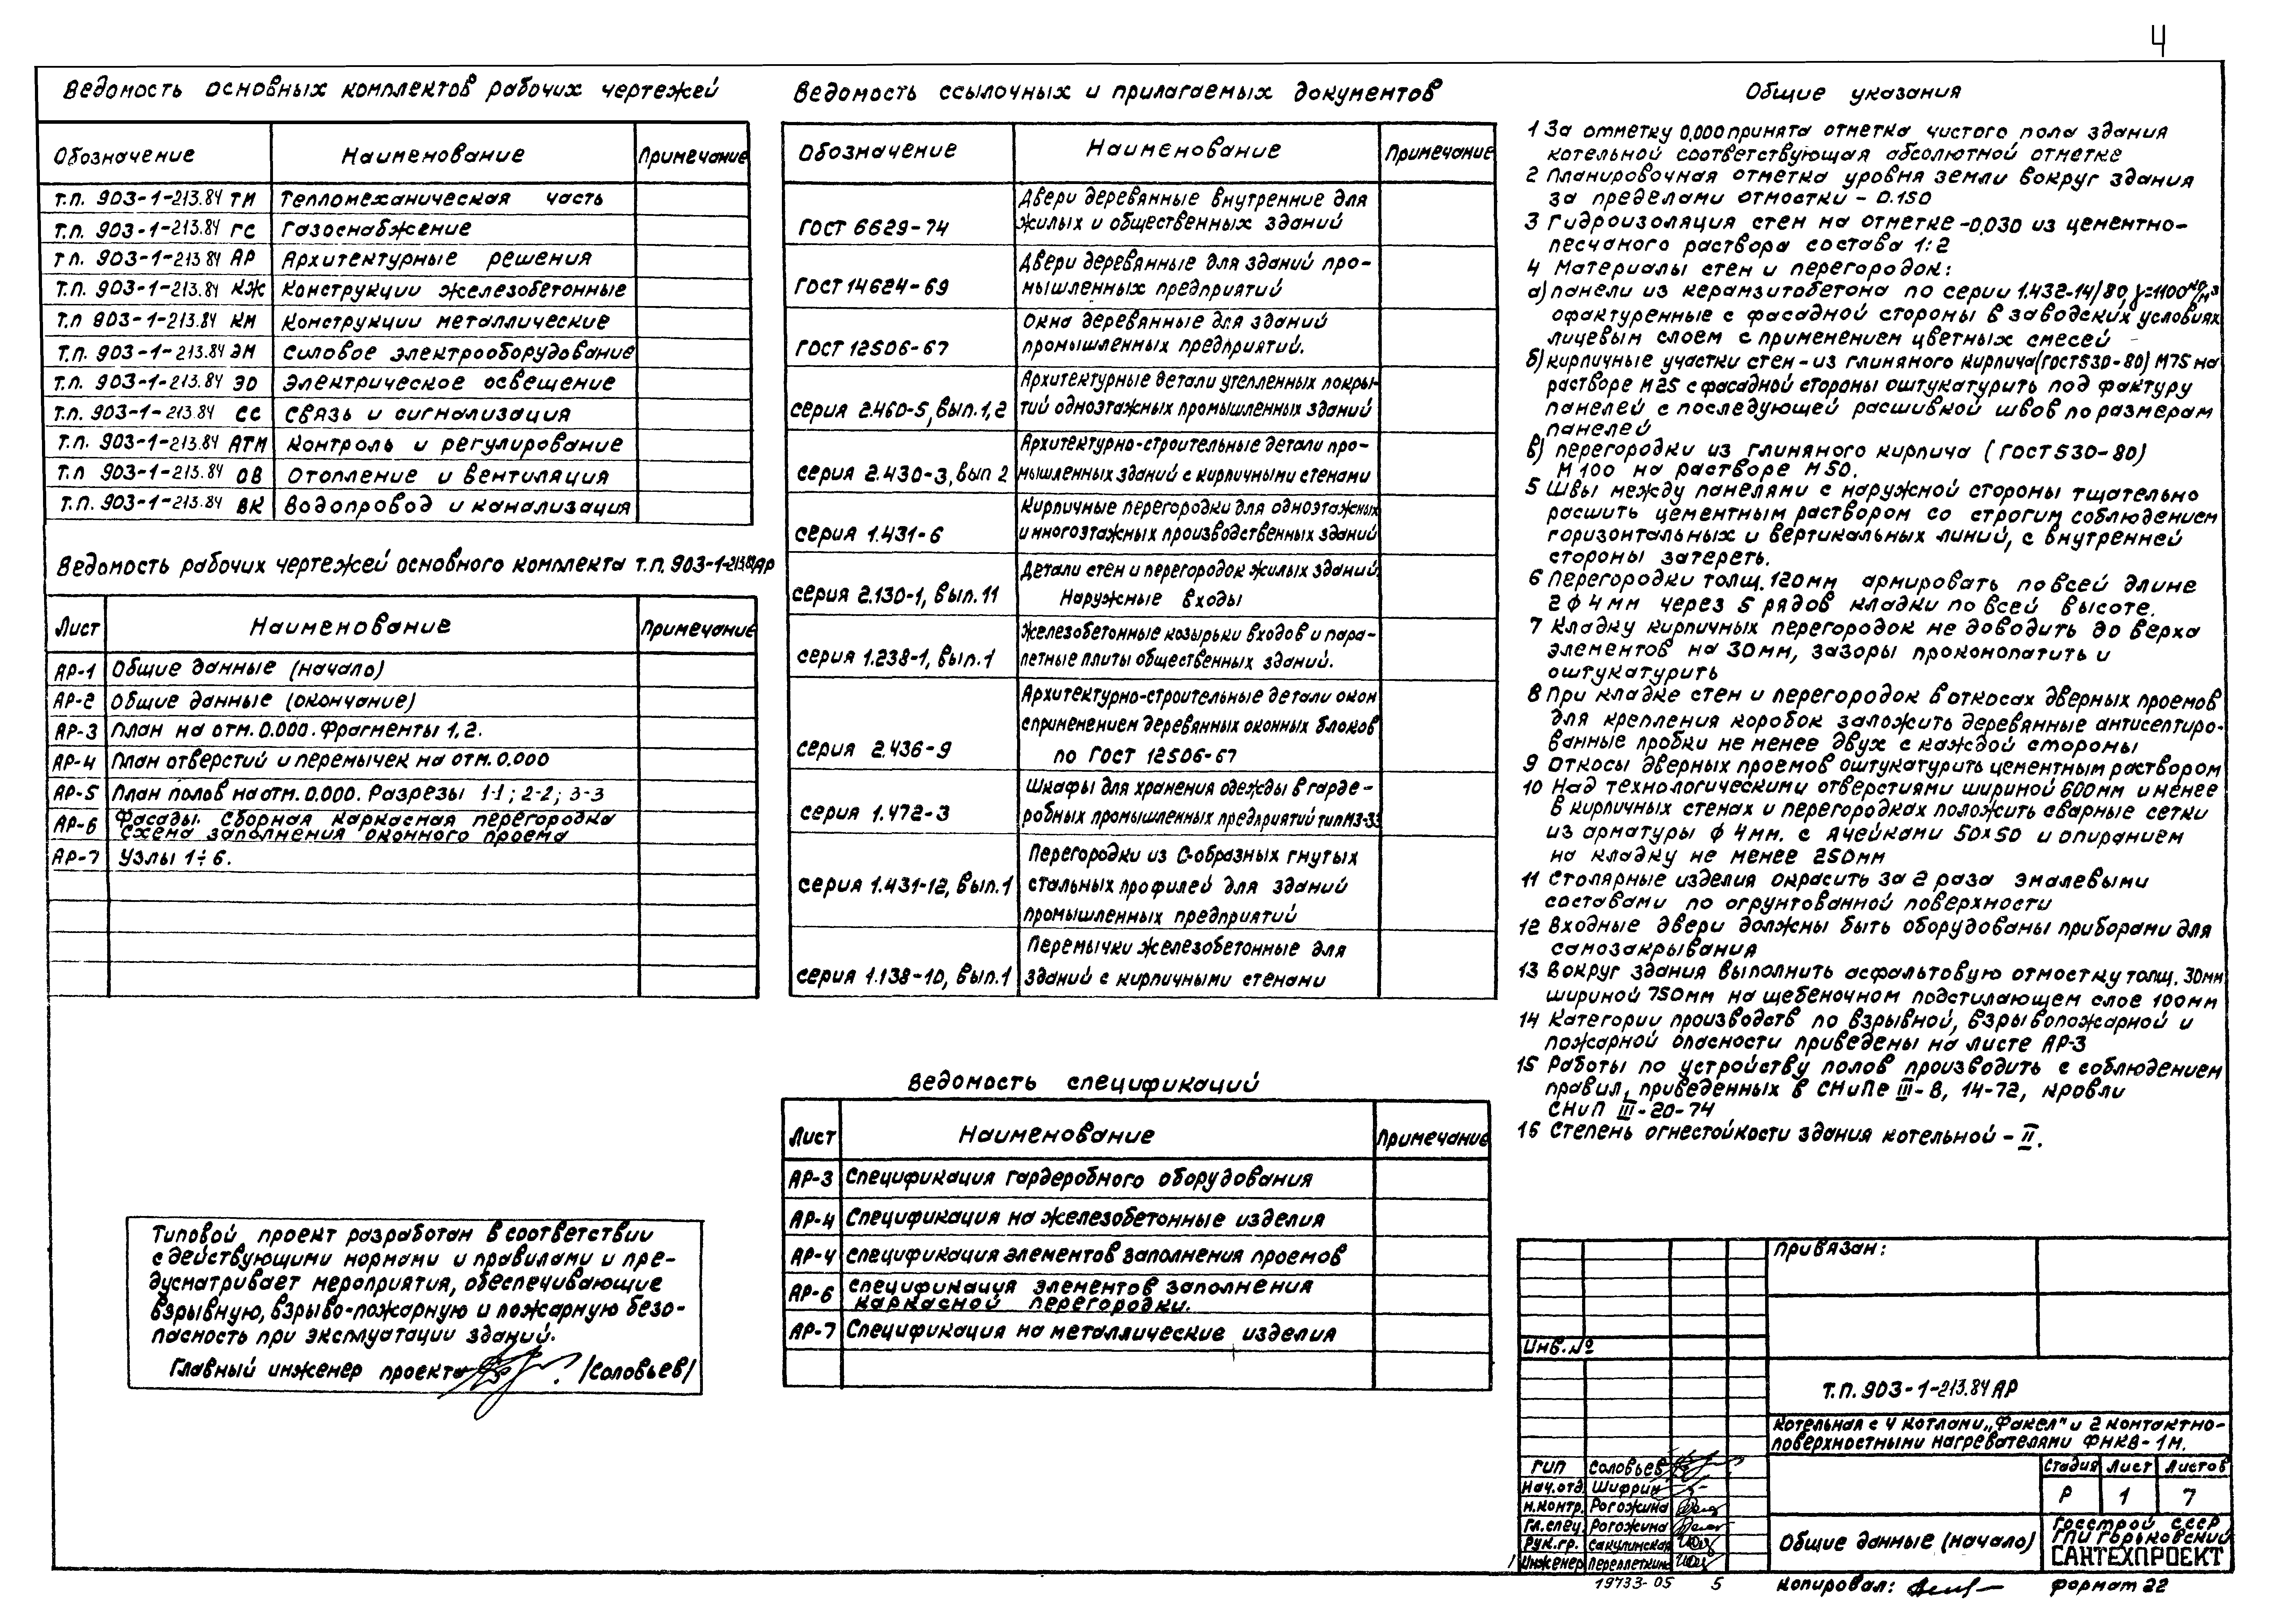 4
Ведомость основных комплектов рабочих чертежей
Обозначение Наименование Примечание
Т.п. 903-1-213.84 ТМ Тепломеханическая часть
Т.п. 903-1-213.84 ГС Газоснабжение
Т.п. 903-1-213.84 АР Архитектурные решения
Т.п. 903-1-213.84 КЖ Конструкции железобетонные
Т.п 903-1-213.84 КМ Конструкции металлические
Т.п. 903-1-213.84 ЭМ Силовое электрооборудование
Т.п. 903-1-213.84 ЭО Электрическое освещение
Т.п. 903-1-213.84 СС Связь и сигнализация
Т.п. 903-1-213.84 АТМ Контроль и регулирование
Т.п 903-1-213.84 ОВ Отопление и вентиляция
Т.п. 903-1-213.84 ВК Водопровод и канализация
Ведомость рабочих чертежей основного комплекта т.п. 903-1-213.84АР
Лист Наименование Примечание
АР-1 Общие данные (начало)
АР-2 Общие данные (окончание)
АР-3 План на отм. 0.000. Фрагменты 1,2.
АР-4 План отверстий и перемычек на отм. 0.000
АР-5 План полов на отм. 0.000. Разрезы 1-1; 2-2; 3-3
АР-6 Фасады. Сборная каркасная перегородка
схема заполнения оконного проема
АР-7 Узлы 1÷6.
Типовой проект разработан в соответствии
с действующими нормами и правилами и пре-
дусматривает мероприятия, обеспечивающие
взрывную, взрыво-пожарную и пожарную безо-
пасность при эксплуатации зданий.
Главный инженер проекта /Соловьев/
Ведомость ссылочных и прилагаемых документов
Обозначение Наименование Примечание
Двери деревянные внутренние для
ГОСТ 6629-74 жилых и общественных зданий
Двери деревянные для зданий про-
ГОСТ 14624-69 мышленных предприятий
Окна деревянные для зданий
ГОСТ 12506-67 промышленных предприятий.
Архитектурные детали утепленных покры-
серия 2.460-5, вып. 1,2 тий одноэтажных промышленных зданий
Архитектурно-строительные детали про-
серия 2.430-3, вып 2 мышленных зданий с кирпичными стенами
Кирпичные перегородки для одноэтажных
серия 1.431-6 и многоэтажных производственных зданий
Детали стен и перегородок жилых зданий.
серия 2.130-1, вып. 11 Наружные входы
Железобетонные козырьки входов и пара-
серия 1.238-1, вып. 1 петные плиты общественных зданий.
Архитектурно-строительные детали окон
сприменением деревянных оконных блоков
серия 2.436-9 по ГОСТ 12506-67
Шкафы для хранения одежды в гарде-
серия 1.472-3 робных промышленных предприятий тип МЗ-33
Перегородки из С-образных гнутых
серия 1.431-12, вып. 1 стальных профилей для зданий
промышленных предприятий
Перемычки железобетонные для
серия 1.138-10, вып. 1 зданий с кирпичными стенами
Ведомость спецификаций
Лист Наименование Примечание
АР-3 Спецификация гардеробного оборудования
АР-4 Спецификация на железобетонные изделия
АР-4 Спецификация элементов заполнения проемов
АР-6 Спецификация элементов заполнения
каркасной перегородки.
АР-7 Спецификация на металлические изделия
Общие указания
1 За отметку 0.000 принята отметка чистого пола здания
котельной соответствующая абсолютной отметке
2 Планировочная отметка уровня земли вокруг здания
за пределами отмостки - 0.150
3 Гидроизоляция стен на отметке -0,030 из цементно-
песчаного раствора состава 1:2
4 Материалы стен и перегородок:
а) панели из керамзитобетона по серии 1.432-14/80, γ=1100кг/м³
офактуренные с фасадной стороны в заводских условиях
лицевым слоем с применением цветных смесей
б) кирпичные участки стен - из глиняного кирпича (ГОСТ 530-80) М75 на
растворе М25 с фасадной стороны оштукатурить под фактуру
панелей с последующей расшивкой швов по размерам
панелей
в) перегородки из глиняного кирпича (ГОСТ 530-80)
М100 на растворе М50.
5 Швы между панелями с наружной стороны тщательно
расшить цементным раствором со строгим соблюдением
горизонтальных и вертикальных линий, с внутренней
стороны затереть.
6 Перегородки толщ. 120мм армировать по всей длине
2ф4мм через 5 рядов кладки по всей высоте.
7 Кладку кирпичных перегородок не доводить до верха
элементов на 30мм, зазоры проконопатить и
оштукатурить
8 При кладке стен и перегородок в откосах дверных проемов
для крепления коробок заложить деревянные антисептиро-
ванные пробки не менее двух с каждой стороны
9 Откосы дверных проемов оштукатурить цементным раствором
10 Над технологическими отверстиями шириной 600мм и менее
в кирпичных стенах и перегородках положить сварные сетки
из арматуры ф 4мм. с ячейками 50×50 и опиранием
на кладку не менее 250мм
11 Столярные изделия окрасить за 2 раза эмалевыми
составами по огрунтованной поверхности
12 Входные двери должны быть оборудованы приборами для
самозакрывания
13 Вокруг здания выполнить асфальтовую отмостку толщ. 30мм
шириной 750мм на щебеночном подстилающем слое 100мм
14 Категории производств по взрывной, взрывопожарной и
пожарной опасности приведены на листе АР-3
15 Работы по устройству полов производить с соблюдением
правил, приведенных в СНиПе III-В, 14-72, кровли
СНиП III-20-74
16 Степень огнестойкости здания котельной - II.
Привязан:
Инв. №
Т.П. 903-1-213.84 АР
Котельная с 4 котлами „Факел" и 2 контактно-
поверхностными нагревателями ФНКВ-1М.
ГИП Соловьев
Нач.отд. Шифрин
Н.контр. Рогожина
Гл.спец. Рогожина
Рук.гр. Сакулинская
Инженер
Стадия Лист Листов
Р 1 7
Общие данные (начало)
Госстрой СССР
ГПИ Горьковский
САНТЕХПРОЕКТ
19733-05 5
Копировал: Формат 22